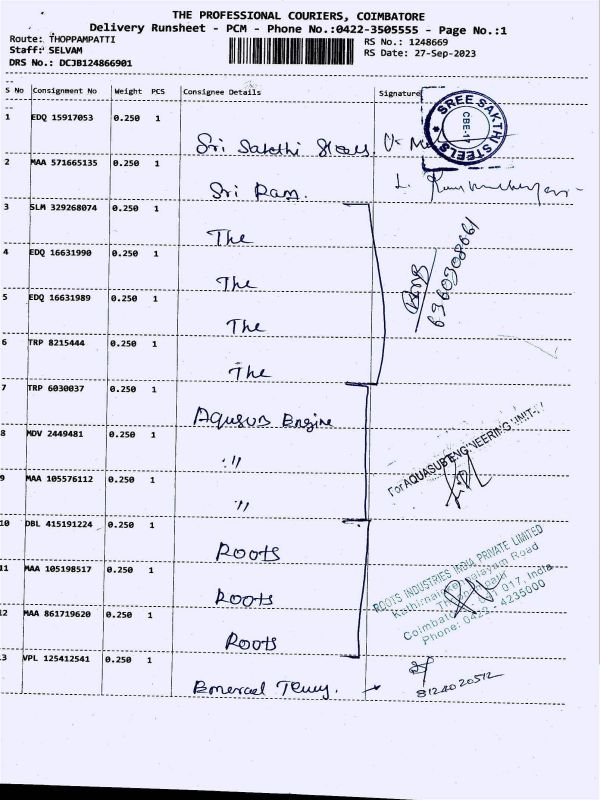 THE PROFESSIONAL COURIERS, COIMBATORE
Delivery Runsheet - PCM - Phone No.:0422-3505555 - Page No.:1
Route: THOPPAMPATTI
RS No.: 1248669
Staff: SELVAM
RS Date: 27-Sep-2023
DRS No.: DCJB124866901
S No Consignment No Weight PCS Consignee Details Signature
1 EDQ 15917053 0.250 1 Sri Sakthi Steels.
SREE SAKTHI STEELS
CBE-17
2 MAA 571665135 0.250 1 Sri Ram.
3 SLM 329268074 0.250 1 The
4 EDQ 16631990 0.250 1 The
5 EDQ 16631989 0.250 1 The
6 TRP 8215444 0.250 1 The
7 TRP 6030037 0.250 1 Aqusub Engine
8 MDV 2449481 0.250 1 "
For AQUASUB ENGINEERING UNIT-
9 MAA 105576112 0.250 1 "
10 DBL 415191224 0.250 1 Roots
11 MAA 105198517 0.250 1 Roots
ROOTS INDUSTRIES INDIA PRIVATE LIMITED
Road
017, India
Phone: 0422 - 4235000
12 MAA 861719620 0.250 1 Roots
3 VPL 125412541 0.250 1
8124020512